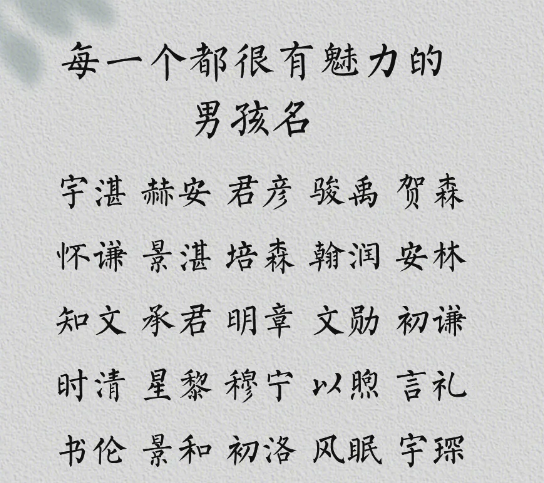 每一个都很有魅力的
男孩名
宇湛 赫安 君彦 骏禹 贺森
怀谦 景湛 培森 翰润 安林
知文 承君 明章 文勋 初谦
时清 星黎 穆宁 以煦 言礼
书伦 景和 初洛 风眠 宇琛